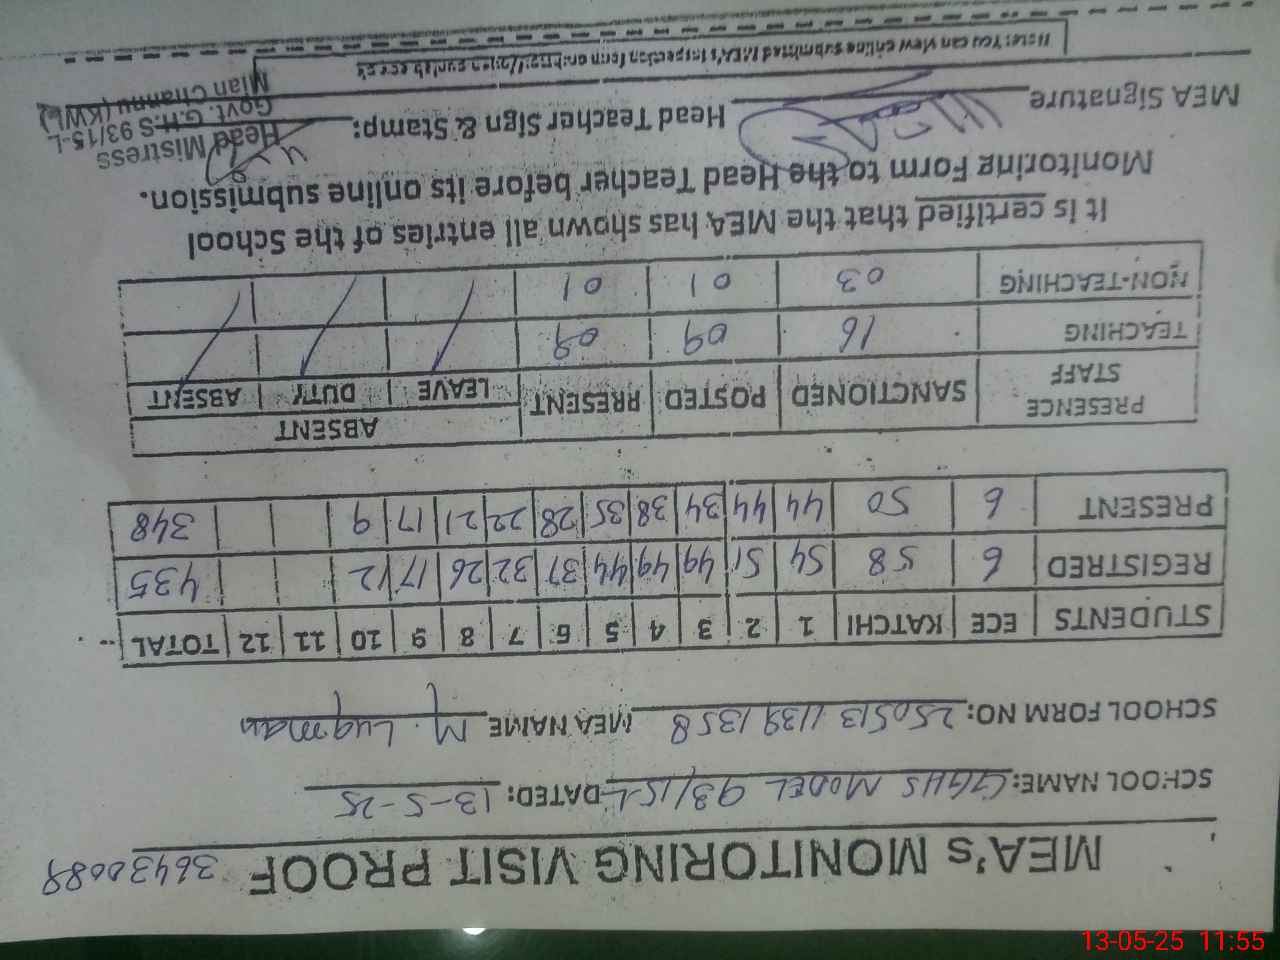 MEA's MONITORING VISIT PROOF 36430089
SCHOOL NAME: GGHS MODEL 93/15-L DATED: 13-5-25
SCHOOL FORM NO: 250513 1139 1358 MEA NAME M. Luqman
STUDENTS ECE KATCHI 1 2 3 4 5 6 7 8 9 10 11 12 TOTAL
REGISTRED 6 58 54 51 49 49 44 37 32 26 17 12 435
PRESENT 6 50 44 44 34 38 35 28 22 21 17 9 348
PRESENCE STAFF SANCTIONED POSTED PRESENT ABSENT
LEAVE DUTY ABSENT
TEACHING 16 09 09
NON-TEACHING 03 01 01
It is certified that the MEA has shown all entries of the School
Monitoring Form to the Head Teacher before its online submission.
MEA Signature Head Teacher Sign & Stamp:
Head Mistress
Govt. G.H.S 93/15-L
Mian Channu (KWL)
Note: You can view online submitted MEA's inspection form on:
13-05-25 11:55